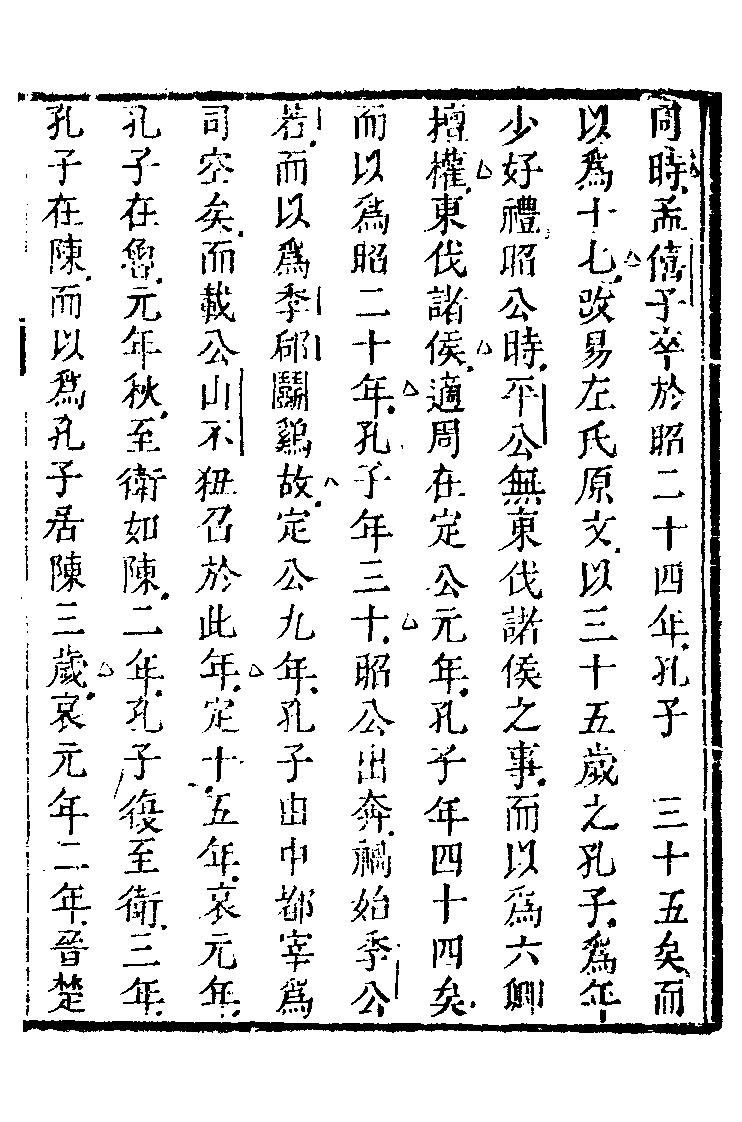 同時孟僖子卒於昭二十四年孔子 三十五矣而
以爲十七改易左氏原文以三十五歲之孔子爲年
少好禮昭公時平公無東伐諸侯之事而以爲六卿
擅權東伐諸侯適周在定公元年孔子年四十四矣
而以爲昭二十年孔子年三十昭公出奔禍始季公
若而以爲季郈鬭鷄故定公九年孔子由中都宰爲
司空矣而載公山不狃召於此年定十五年哀元年
孔子在魯元年秋至衛如陳二年孔子復至衛三年
孔子在陳而以爲孔子居陳三歲哀元年二年晉楚